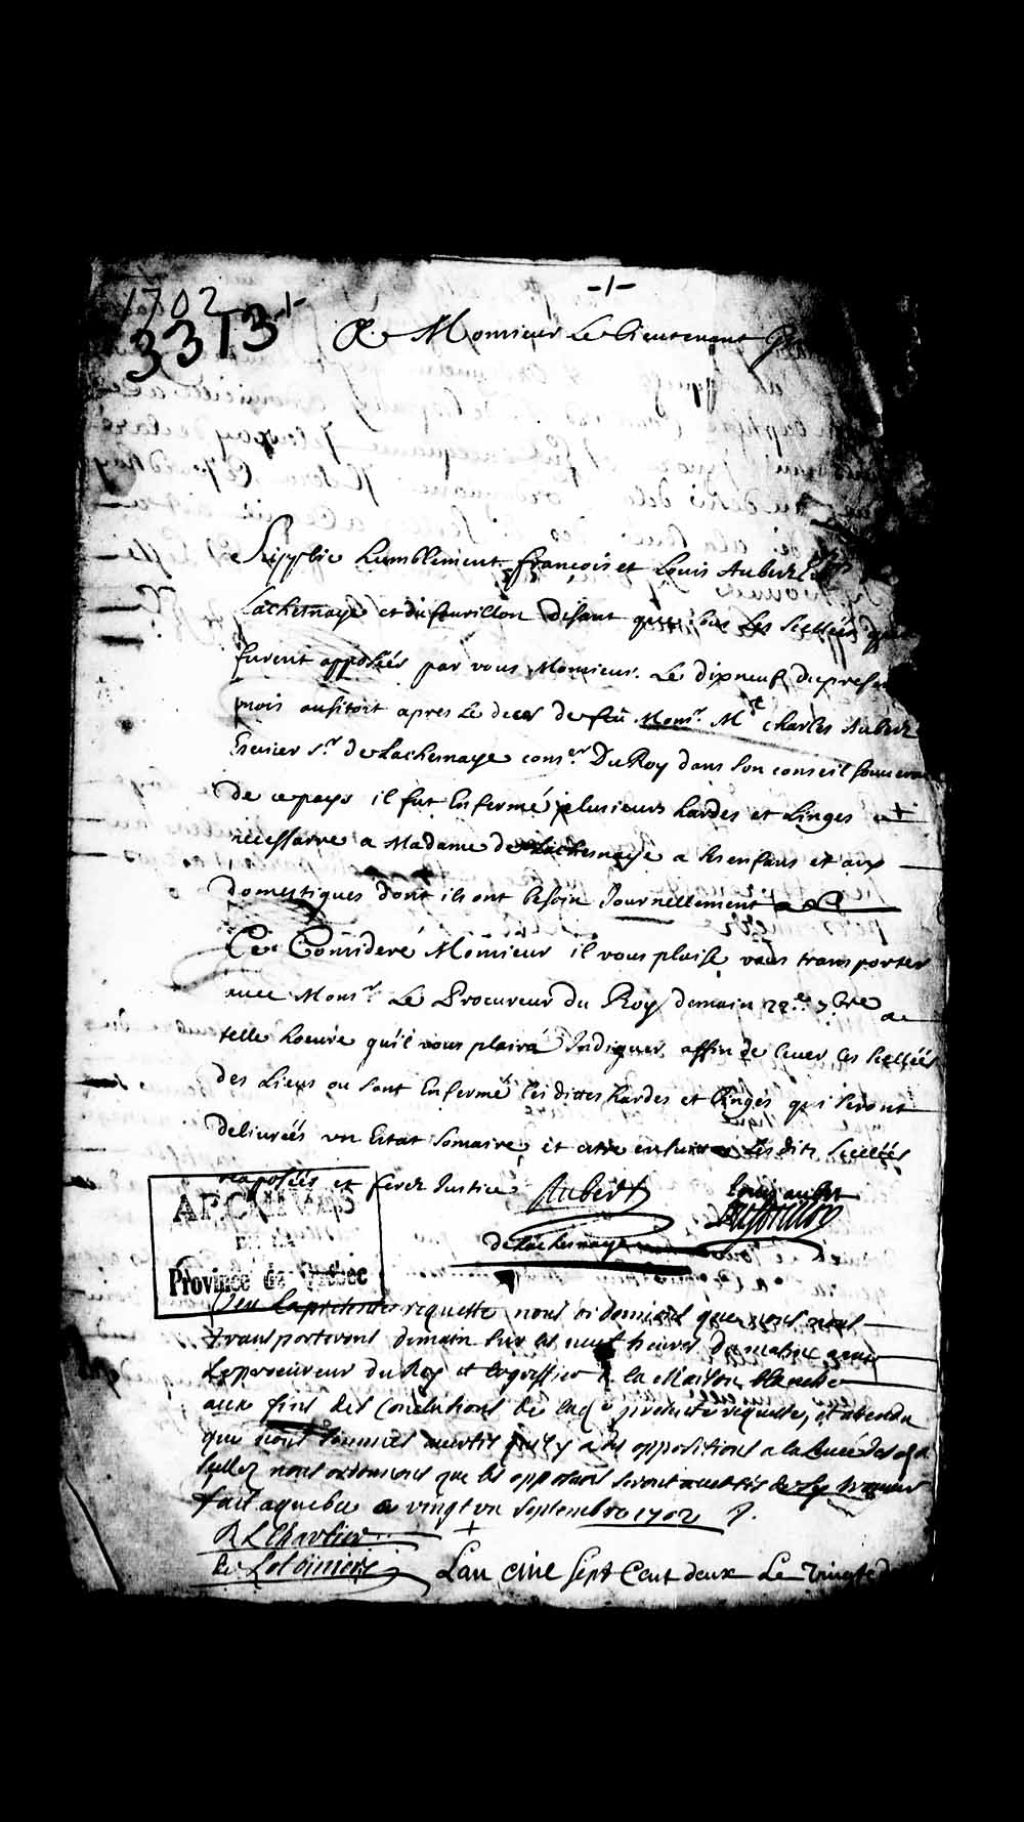 -1-
1702
3313
A Monsieur Le Lieutenant
Supplie humblement françois et Louis Aubert
Lachesnaye et du forillon disant que sous les scellées que
furent apposées par vous Monsieur. Le dixneuf du present
mois ausitost apres le deces de feu Monsr. Me charles Aubert
Escuier sr. de Lachesnaye conser. Du Roy dans son conseil souverain
de ce pays il fut Enfermé plusieurs hardes et Linges
necessarre a Madame de Lachesnaye a ses enfans et aux
domestiques dont ils ont besoin Journellement
Ce Consideré Monsieur il vous plaise vous transporter
avec Monsr. Le Procureur du Roy demain 22e. 7bre a
telle hoeure qu'il vous plaira Indiquer affin de lever les scellées
des Lieux ou sont Enfermé les dittes hardes et linges qui seront
delivrées un Estat somaire et estre ensuitte les dits scellées
reaposées et ferez Justice
Aubert
Louis aubert
duforillon
delachesnaye
ARCHIVES
DE LA
Province de Québec
Veu la presente requette nous ordonnons que nous nous
transporterons demain sur les neuf heures du matin avec
le procureur du Roy et le greffier a la Maison
aux fins des Conclusions de lad. requette, et attendu
que nous sommes avertis qu'il y a des oppositions a la levée des
scellez nous ordonnons que les opposans seront avertis de sy trouver
fait a quebec ce vingt un Septembre 1702
R L Chartier
de Lotbiniere
Lan mil sept Cent deux Le vingt